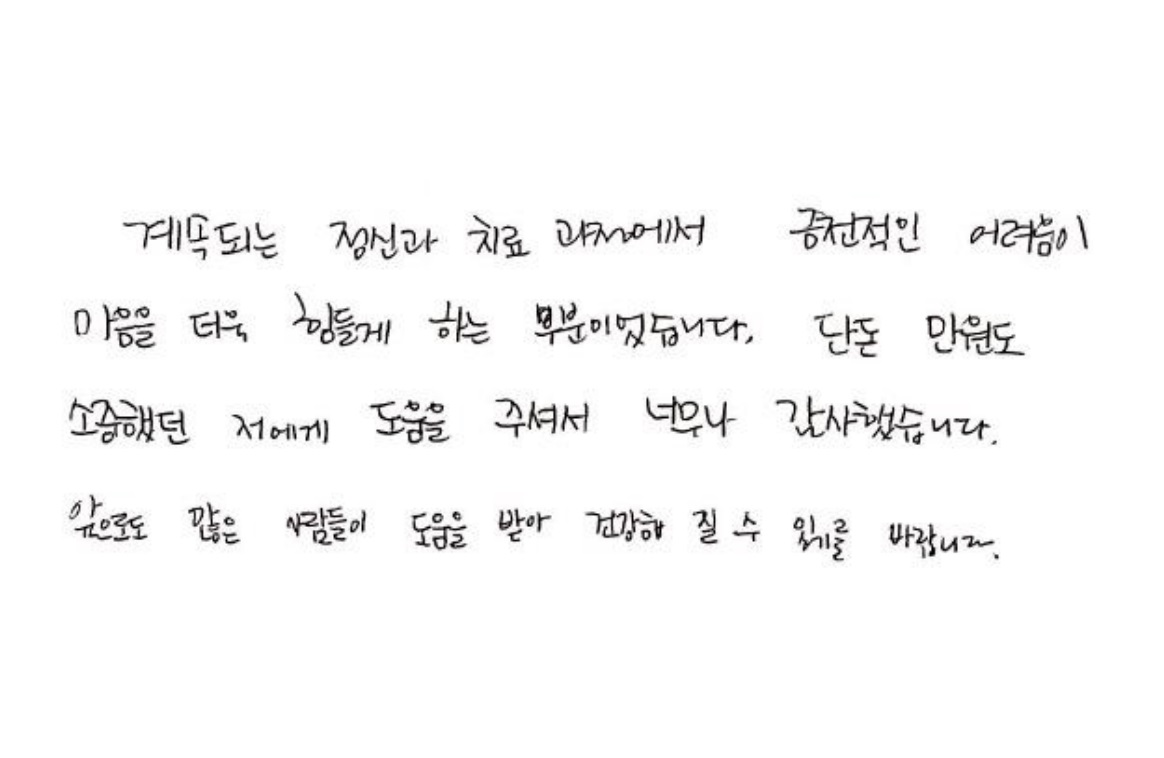 계속되는 정신과 치료 과정에서 금전적인 어려움이
마음을 더욱 힘들게 하는 부분이었습니다. 단돈 만원도
소중했던 저에게 도움을 주셔서 너무나 감사했습니다.
앞으로도 많은 사람들이 도움을 받아 건강해 질 수 있기를 바랍니다.